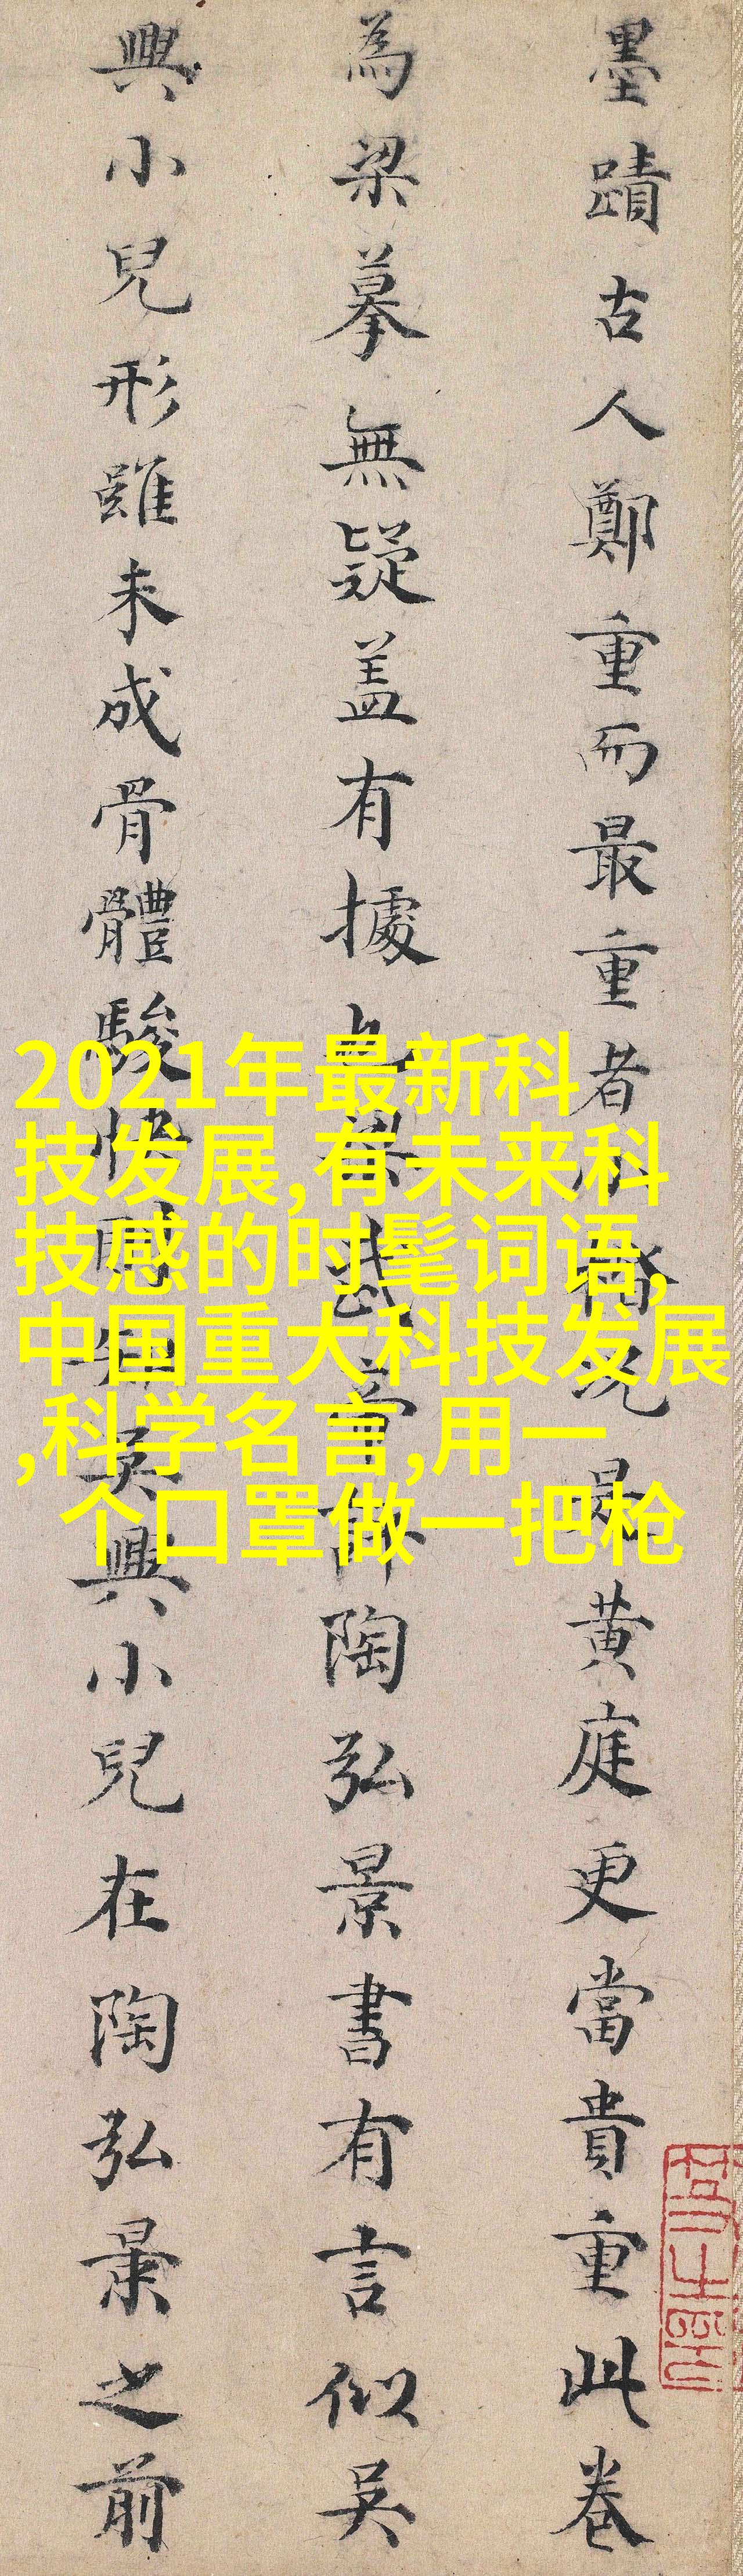 墨蹟古人鄭重而最重者
黄庭更當貴重此卷
為梁摹無疑蓋有據
陶弘景書有言似吳
興小兒形雖未成骨體駿快
吳興小兒在陶弘景之前
2021年最新科
技发展,有未来科
技感的时髦词语,
中国重大科技发展
,科学名言,用一
个口罩做一把枪